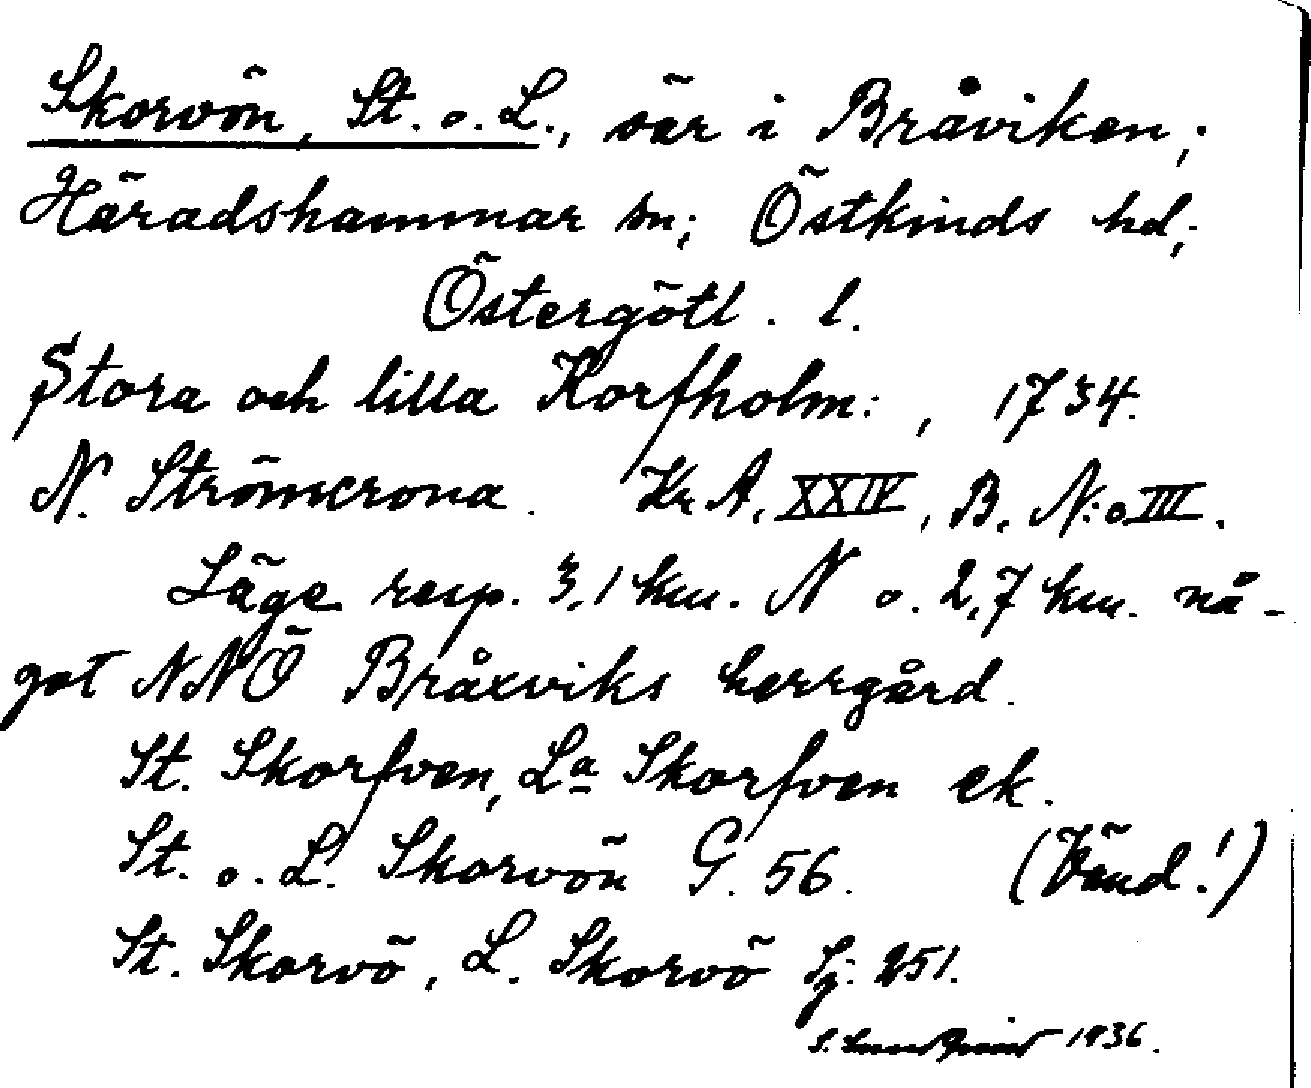 Skorvön, St. o. L., öar i Bråviken;
Häradshammar sn; Östkinds hd;
Östergötl. l.
Stora och lilla Korfholm:, 1734.
N. Strömcrona. Kr. A. XXIV, B. N:o III.
Läge resp. 3,1 km. N o. 2,7 km. nå-
got NNÖ Bråxviks herrgård.
St. Skorfven, La Skorfven ek.
St. o. L. Skorvön G. 56. (Vänd!)
St. Skorvö, L. Skorvö Sj. 251.
S. 1936.